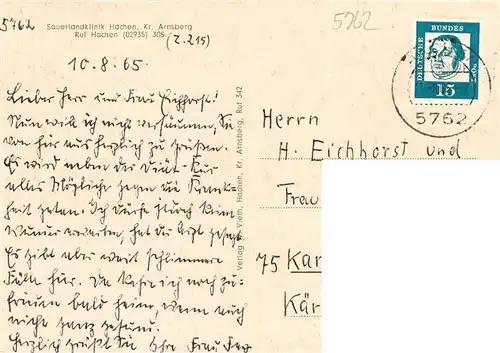 5762
Sauerlandklinik Hachen, Kr. Arnsberg
Ruf Hachen (02935) 305
(Z. 215)
5762
10.8.65.
Lieber Herr und Frau Eichhorst!
Nun will ich nicht versäumen, Sie
von hier aus herzlich zu grüßen.
Es wird neben der Diät-Kur
alles Mögliche gegen die Krank-
heit getan. Ich dürfe jedoch kein
Wunder erwarten, hat der Arzt gesagt.
Es gibt aber weit schlimmere
Fälle hier. Da kehre ich noch zu-
frieden bald heim, wenn auch
nicht ganz gesund.
Herzlich grüßt Sie Ihre Frau
Verlag Vieth, Hachen, Kr. Arnsberg, Ruf 342
DEUTSCHE BUNDESPOST
15
5762
Herrn
H. Eichhorst und
Frau
75 Kar
Kär